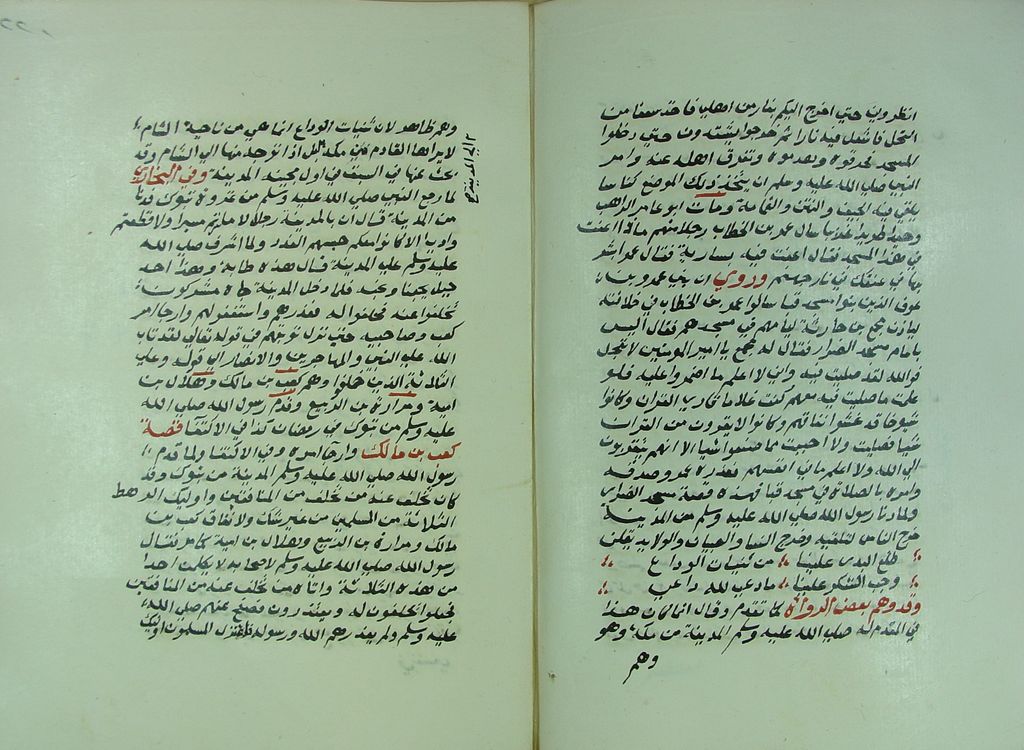 انظروني حتى اخرج اليكم بنار من اهلي فاخذ سعفا من
النخل فاشعل فيه نارا ثم خرجوا يشتدون حتى دخلوا
المسجد فحرقوه وهدموه وتفرق اهله عنه وامر
النبي صلى الله عليه وسلم ان يتخذ ذلك الموضع كناسا
يلقى فيه الجيف والنتن والقمامة ومات ابو عامر الراهب
وحيدا طريدا غريبا سال عمر بن الخطاب رجلا منهم ماذا اعنت
في هذا المسجد فقال اعنت فيه بسارية فقال عمر ابشر
بها في عنقك في نار جهنم وروي ان بني عمرو بن
عوف الذين بنوا مسجد قبا سالوا عمر بن الخطاب في خلافته
لياذن لمجمع بن حارثة ليامهم في مسجدهم فقال اليس
بامام مسجد الضرار فقال له مجمع يا امير المومنين لا تعجل
فوالله لقد صليت فيه واني لا اعلم ما اضمروا عليه فلو
علمت ما صليت فيه معهم كنت غلاما قاريا للقران وكانوا
شيوخا قد عشوا نفاقهم وكانوا لا يقرون من القران
شيا فصليت ولا احسب مما صنعوا شيا الا انهم يتقربون
الى الله ولا اعلم ما في انفسهم فعذره عمر وصدقه
وامره بالصلاة في مسجد قبا فهذه قصة مسجد الضرار
ولما دنا رسول الله صلى الله عليه وسلم من المدينة
خرج الناس لتلقيه وخرج النسا والصبيان والولايد يقلن
طلع البدر علينا من ثنيات الوداع
وجب الشكر علينا ما دعا لله داعي
وقد وهم بعض الرواة كما تقدم وقال انما كان هذا
في المقدم له صلى الله عليه وسلم المدينة من مكة وهو
وهم
وهم ظاهر لان ثنيات الوداع انما هي من ناحية الشام
لا يراها القادم من مكة بل اذا توجه منها الى الشام وقد
الى المدينة
وفي البخاري
لما رجع النبي صلى الله عليه وسلم من غزوة تبوك فدنا
من المدينة قال ان بالمدينة رجالا ما سرتم مسيرا ولا قطعتم
واديا الا كانوا معكم حبسهم العذر ولما اشرف صلى الله
عليه وسلم على المدينة قال هذه طابة وهذا احد
جبل يحبنا ونحبه فلما دخل المدينة جاه مشركون
تخلفوا عنه فحلفوا له فعذرهم واستغفر لهم وارجا امر
كعب وصاحبيه حتى نزل توبتهم في قوله تعالى لقد تاب
الله على النبي والمهاجرين والانصار الى قوله وعلى
الثلاثة الذين خلفوا وهم كعب بن مالك وهلال بن
امية ومرارة بن الربيع وقدم رسول الله صلى الله
عليه وسلم من تبوك في رمضان كذا في الاكتفا قصة
كعب بن مالك وارجا امره وفي الاكتفا ولما قدم
رسول الله صلى الله عليه وسلم المدينة من تبوك وقد
كان تخلف عنه من تخلف من المنافقين واوليك الرهط
الثلاثة من المسلمين من غير شك ولا نفاق كعب بن
مالك ومرارة بن الربيع وهلال بن امية كما مر فقال
رسول الله صلى الله عليه وسلم لاصحابه لا يكلمن احدا
من هذه الثلاثة واتاه من تخلف عنه من المنافقين
فجعلوا يحلفون له ويعتذرون فصفح عنهم صلى الله
عليه وسلم ولم يعذرهم الله ورسوله فاعتزل المسلمون اوليك